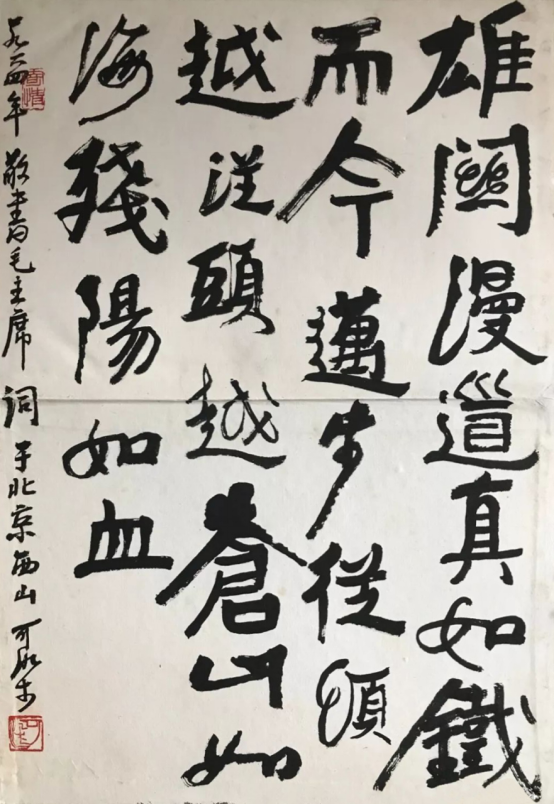 雄關漫道真如鐵
而今邁步從頭
越從頭越蒼山如
海殘陽如血
四年 敬書毛主席詞 于北京西山 可染